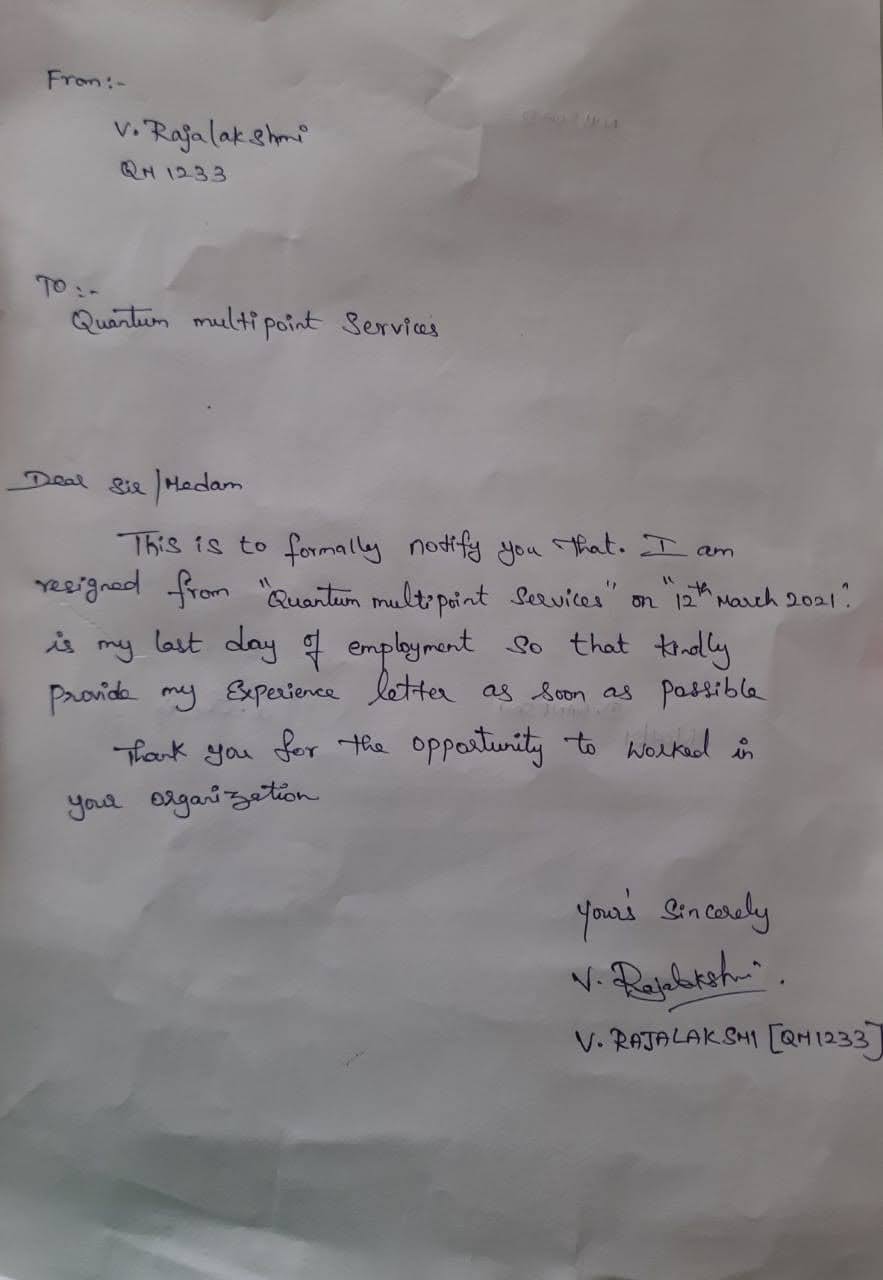 From:-
V. Rajalakshmi
QM 1233
TO :-
Quantum multipoint Services
Dear Sir/Madam
This is to formally notify you that. I am
resigned from "Quantum multipoint Services" on "12th March 2021".
is my last day of employment so that kindly
Provide my Experience letter as soon as possible
Thank you for the opportunity to worked in
your organization
your's Sincerely
V. Rajalakshmi.
V. RAJALAKSHMI [QM1233]